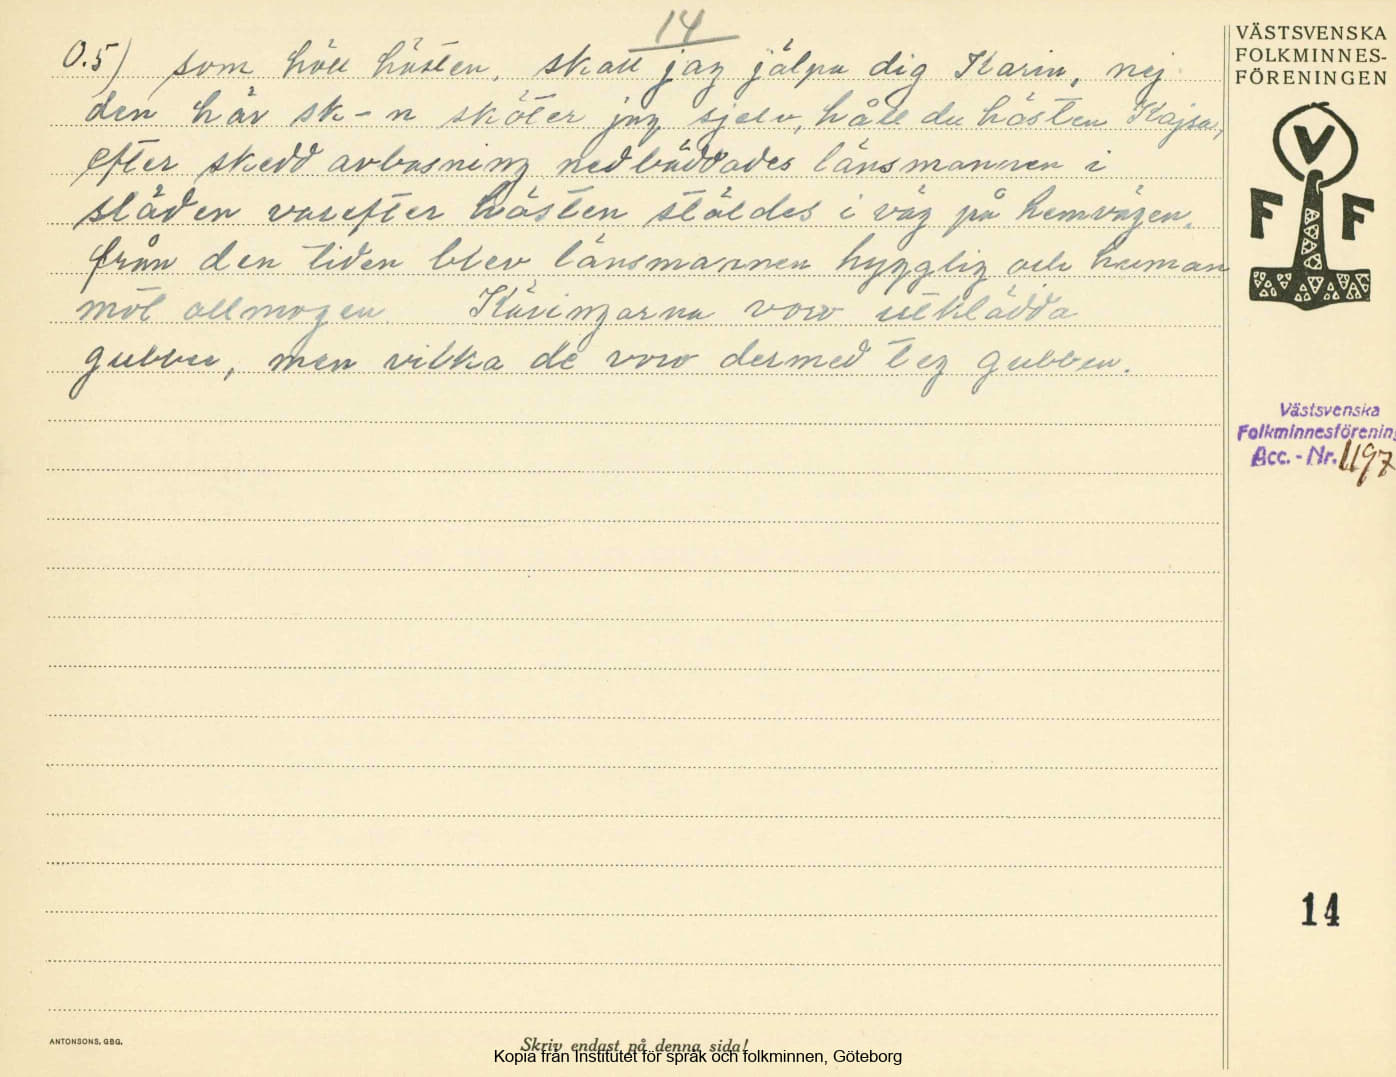 14
O.5) som höll hästen. skall jag jälpa dig Karin, nej
den här sk-n sköter jag sjelv, håll du hästen Kajsa,
efter skedd avbasning nedbäddades länsmannen i
släden varefter hästen stäldes i väg på hemvägen.
från den tiden blev länsmannen hygglig och human
möt allmogen. Käringarna voro utklädda
gubbar, men vilka de voro dermed teg gubben.
VÄSTSVENSKA
FOLKMINNES-
FÖRENINGEN
V
F F
Västsvenska
Folkminnesförening
Acc. - Nr. 1197
14
ANTONSONS, GBG.
Skriv endast på denna sida!
Kopia från Institutet för språk och folkminnen, Göteborg